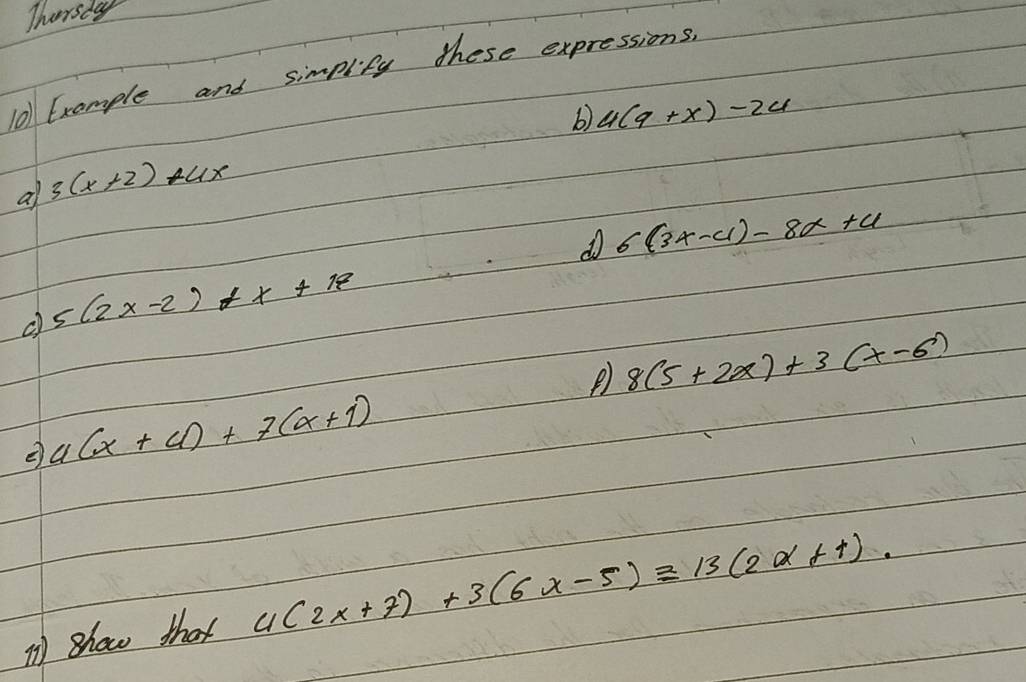 Thursday
10) Example and simplify these expressions.
a) 3(x+2) +4x
b) 4(9+x) -24
c) 5(2x-2) + x + 18
d) 6(3x-4) - 8x +4
e) 4(x+4) + 7(x+1)
f) 8(5+2x) + 3(x-6)
11) Show that 4(2x+7) +3(6x-5) ≡ 13(2x+1).